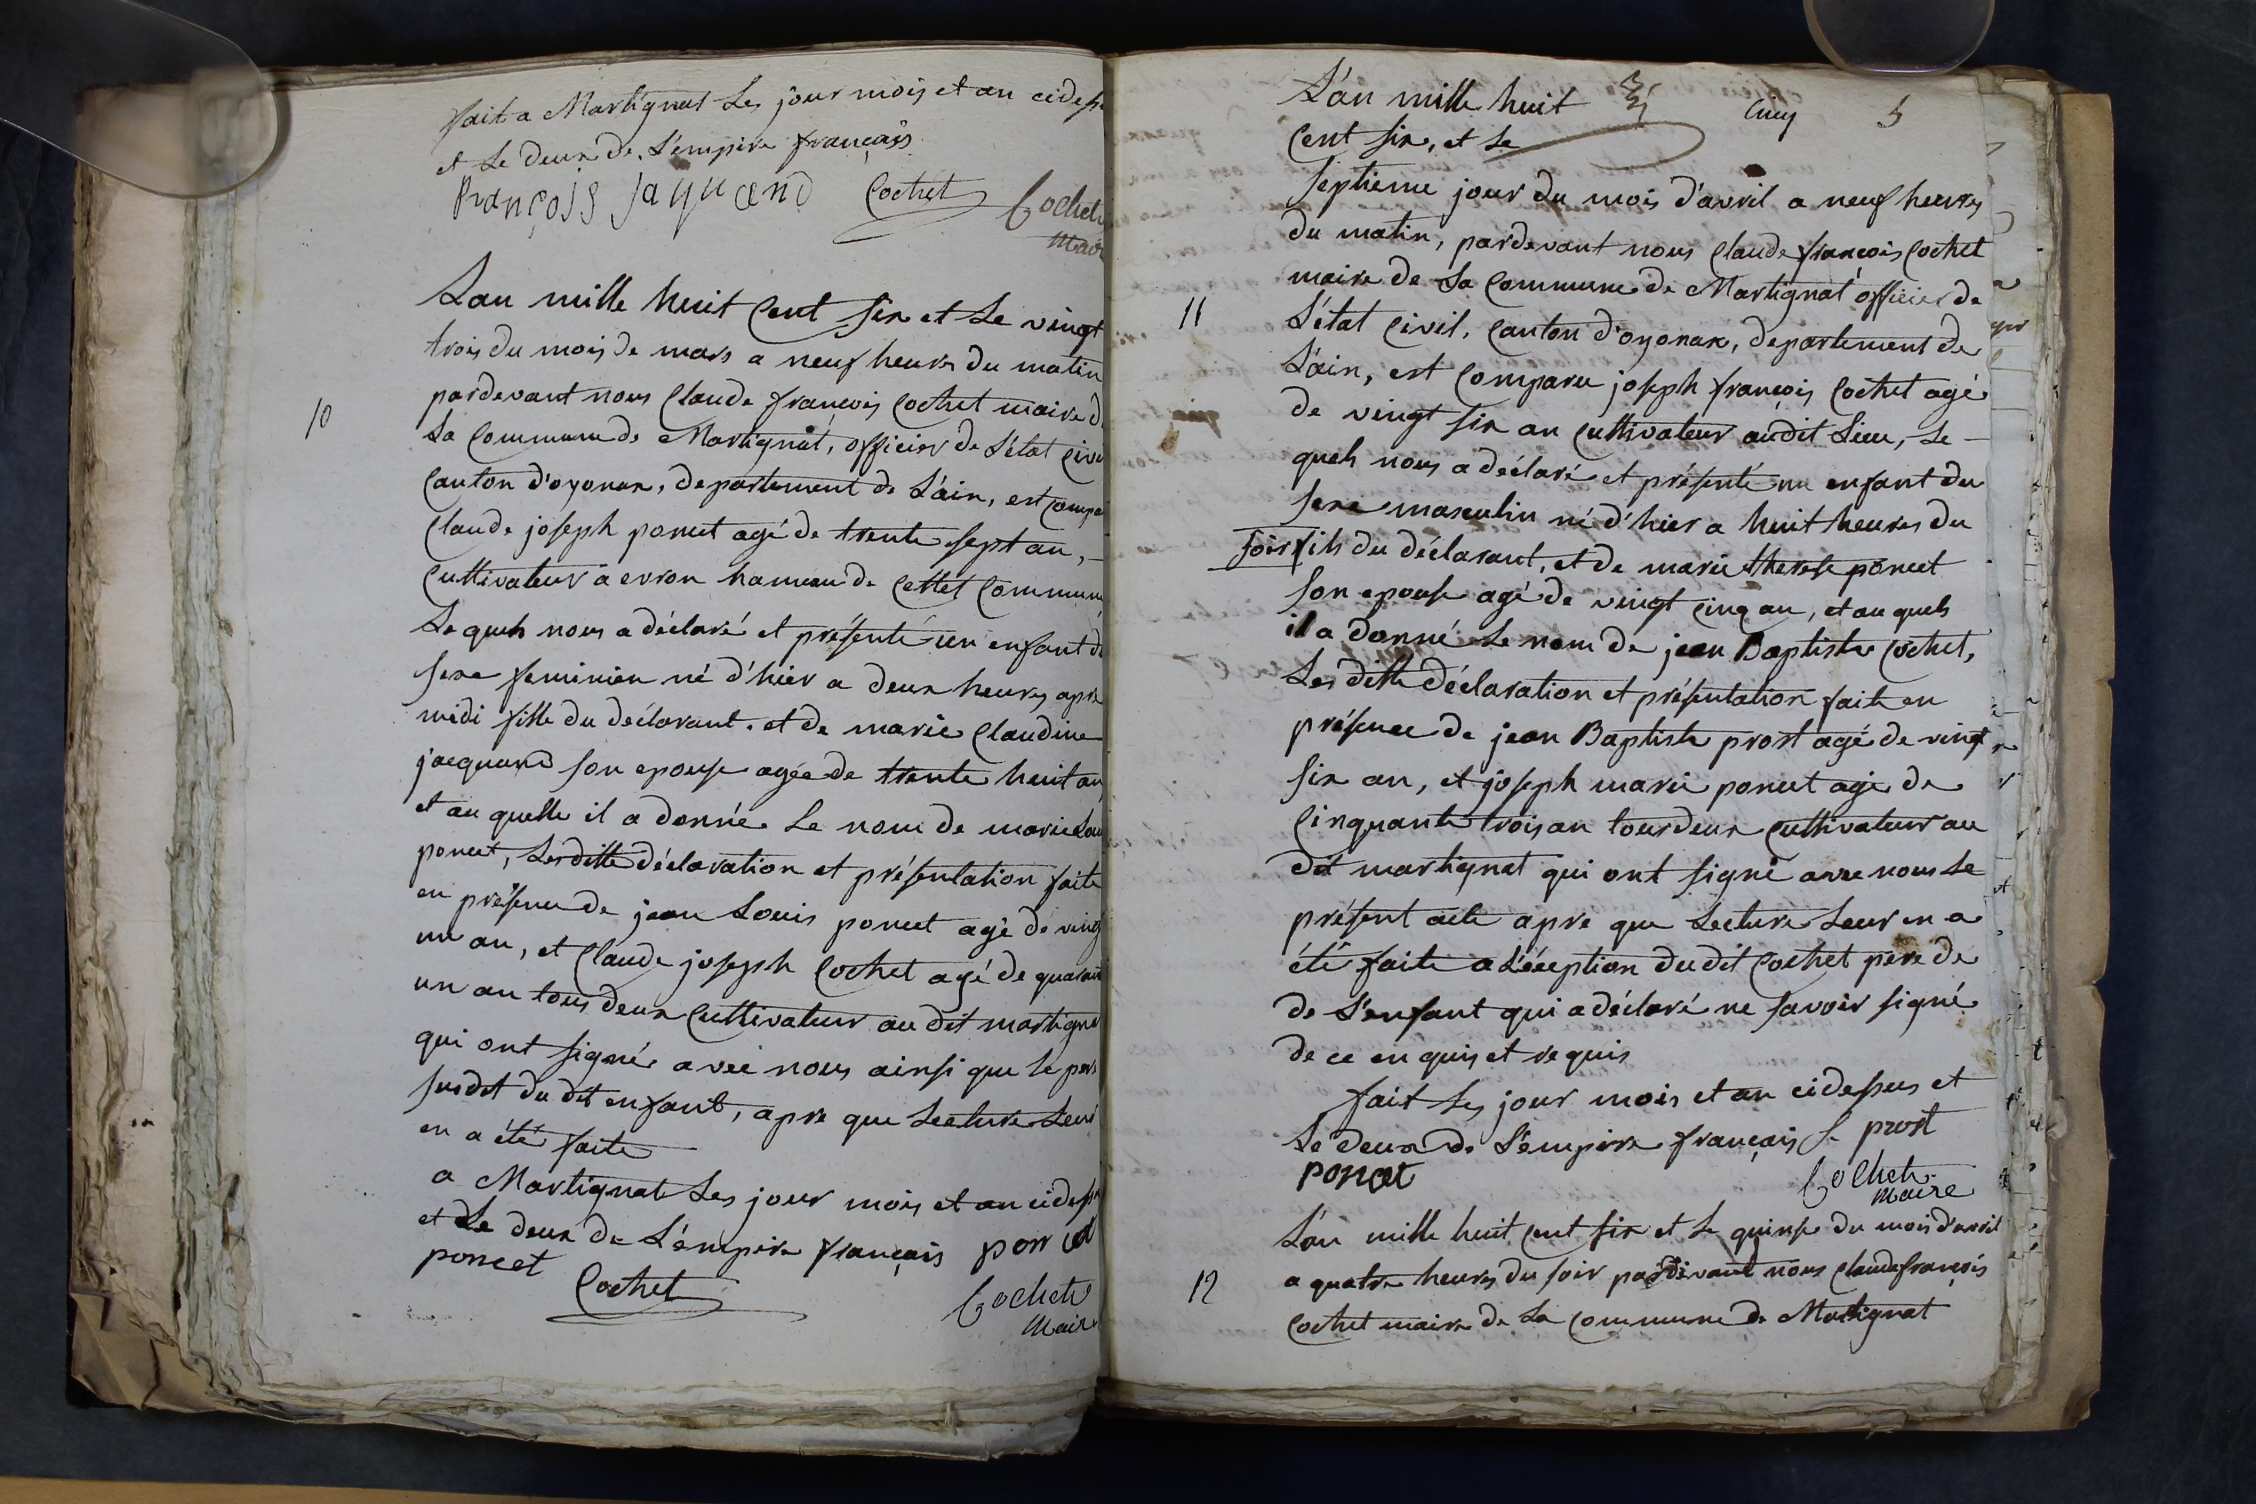 fait a Martignat Les jour mois et an cidess
et Le deux de L'empire français
françois jaquand Cochet Cochet
Mair
L'an mille huit Cent six et Le vingt
trois du mois de mars a neuf heures du matin
pardevant nous Claude françois Cochet maire d
10
La Commune de Martignat, officier de L'état Civi
Canton d'oyonax, departement de L'ain, est Compa
Claude joseph poncet agé de trente sept an,
Cultivateur a evron hameau de Cettet Commune
Le quels nous a déclaré et présenté un enfant d
sexe feminien né d'hier a deux heures apre
midi fille du déclarant. et de marie Claudine
jacquand son epouse agée de trente huit an
et au quelle il a donné Le nom de marie Lou
poncet, Lesditte déclaration et présentation faite
en présence de jean Louis poncet agé de ving
un an, et Claude joseph Cochet agé de quarant
un an tous deux Cultivateur au dit martignat
qui ont signé avec nous ainsi que le per
susdit du dit enfant, apre que Lecture Leur
en a été faite
a Martignat Les jour mois et an cidess
et Le deux de L'empire français poncet
poncet
Cochet Cochet
Maire
L'an mille huit Cinq 5
Cent six, et Le
septieme jour du mois d'avril a neuf heures
du matin, pardevant nous Claude françois Cochet
maire de La Commune de Martignat officier de
11
L'état Civil, Canton d'oyonax, departement de
L'ain, est Comparu joseph françois Cochet agé
de vingt six an Cultivateur audit Lieu, Le
quels nous a déclaré et présenté un enfant du
sexe masculin né d'hier a huit heures du
soir fils du déclarant, et de marie therese poncet
son epouse agé de vingt cinq an, et au quels
il a donné Le nom de jean Baptiste Cochet,
Les ditte déclaration et présentation faite en
présence de jean Baptiste prost agé de vingt
six an, et joseph marie poncet agé de
Cinquante trois an tourdeux Cultivateur au
dit martignat qui ont signé avec nous Le
présent acte apre que Lecture Leur en a
été faite a L'éception du dit Cochet père de
de L'enfant qui a déclaré ne savoir signé
de ce enquis et requis
fait Les jour mois et an cidessus et
Le deux de L'empire français prost
poncet Cochet
Maire
L'an mille huit Cent six et Le quinse du mois d'avril
12
a quatre heures du soir pardevant nous Claude françois
Cochet maire de La Commune de Martignat